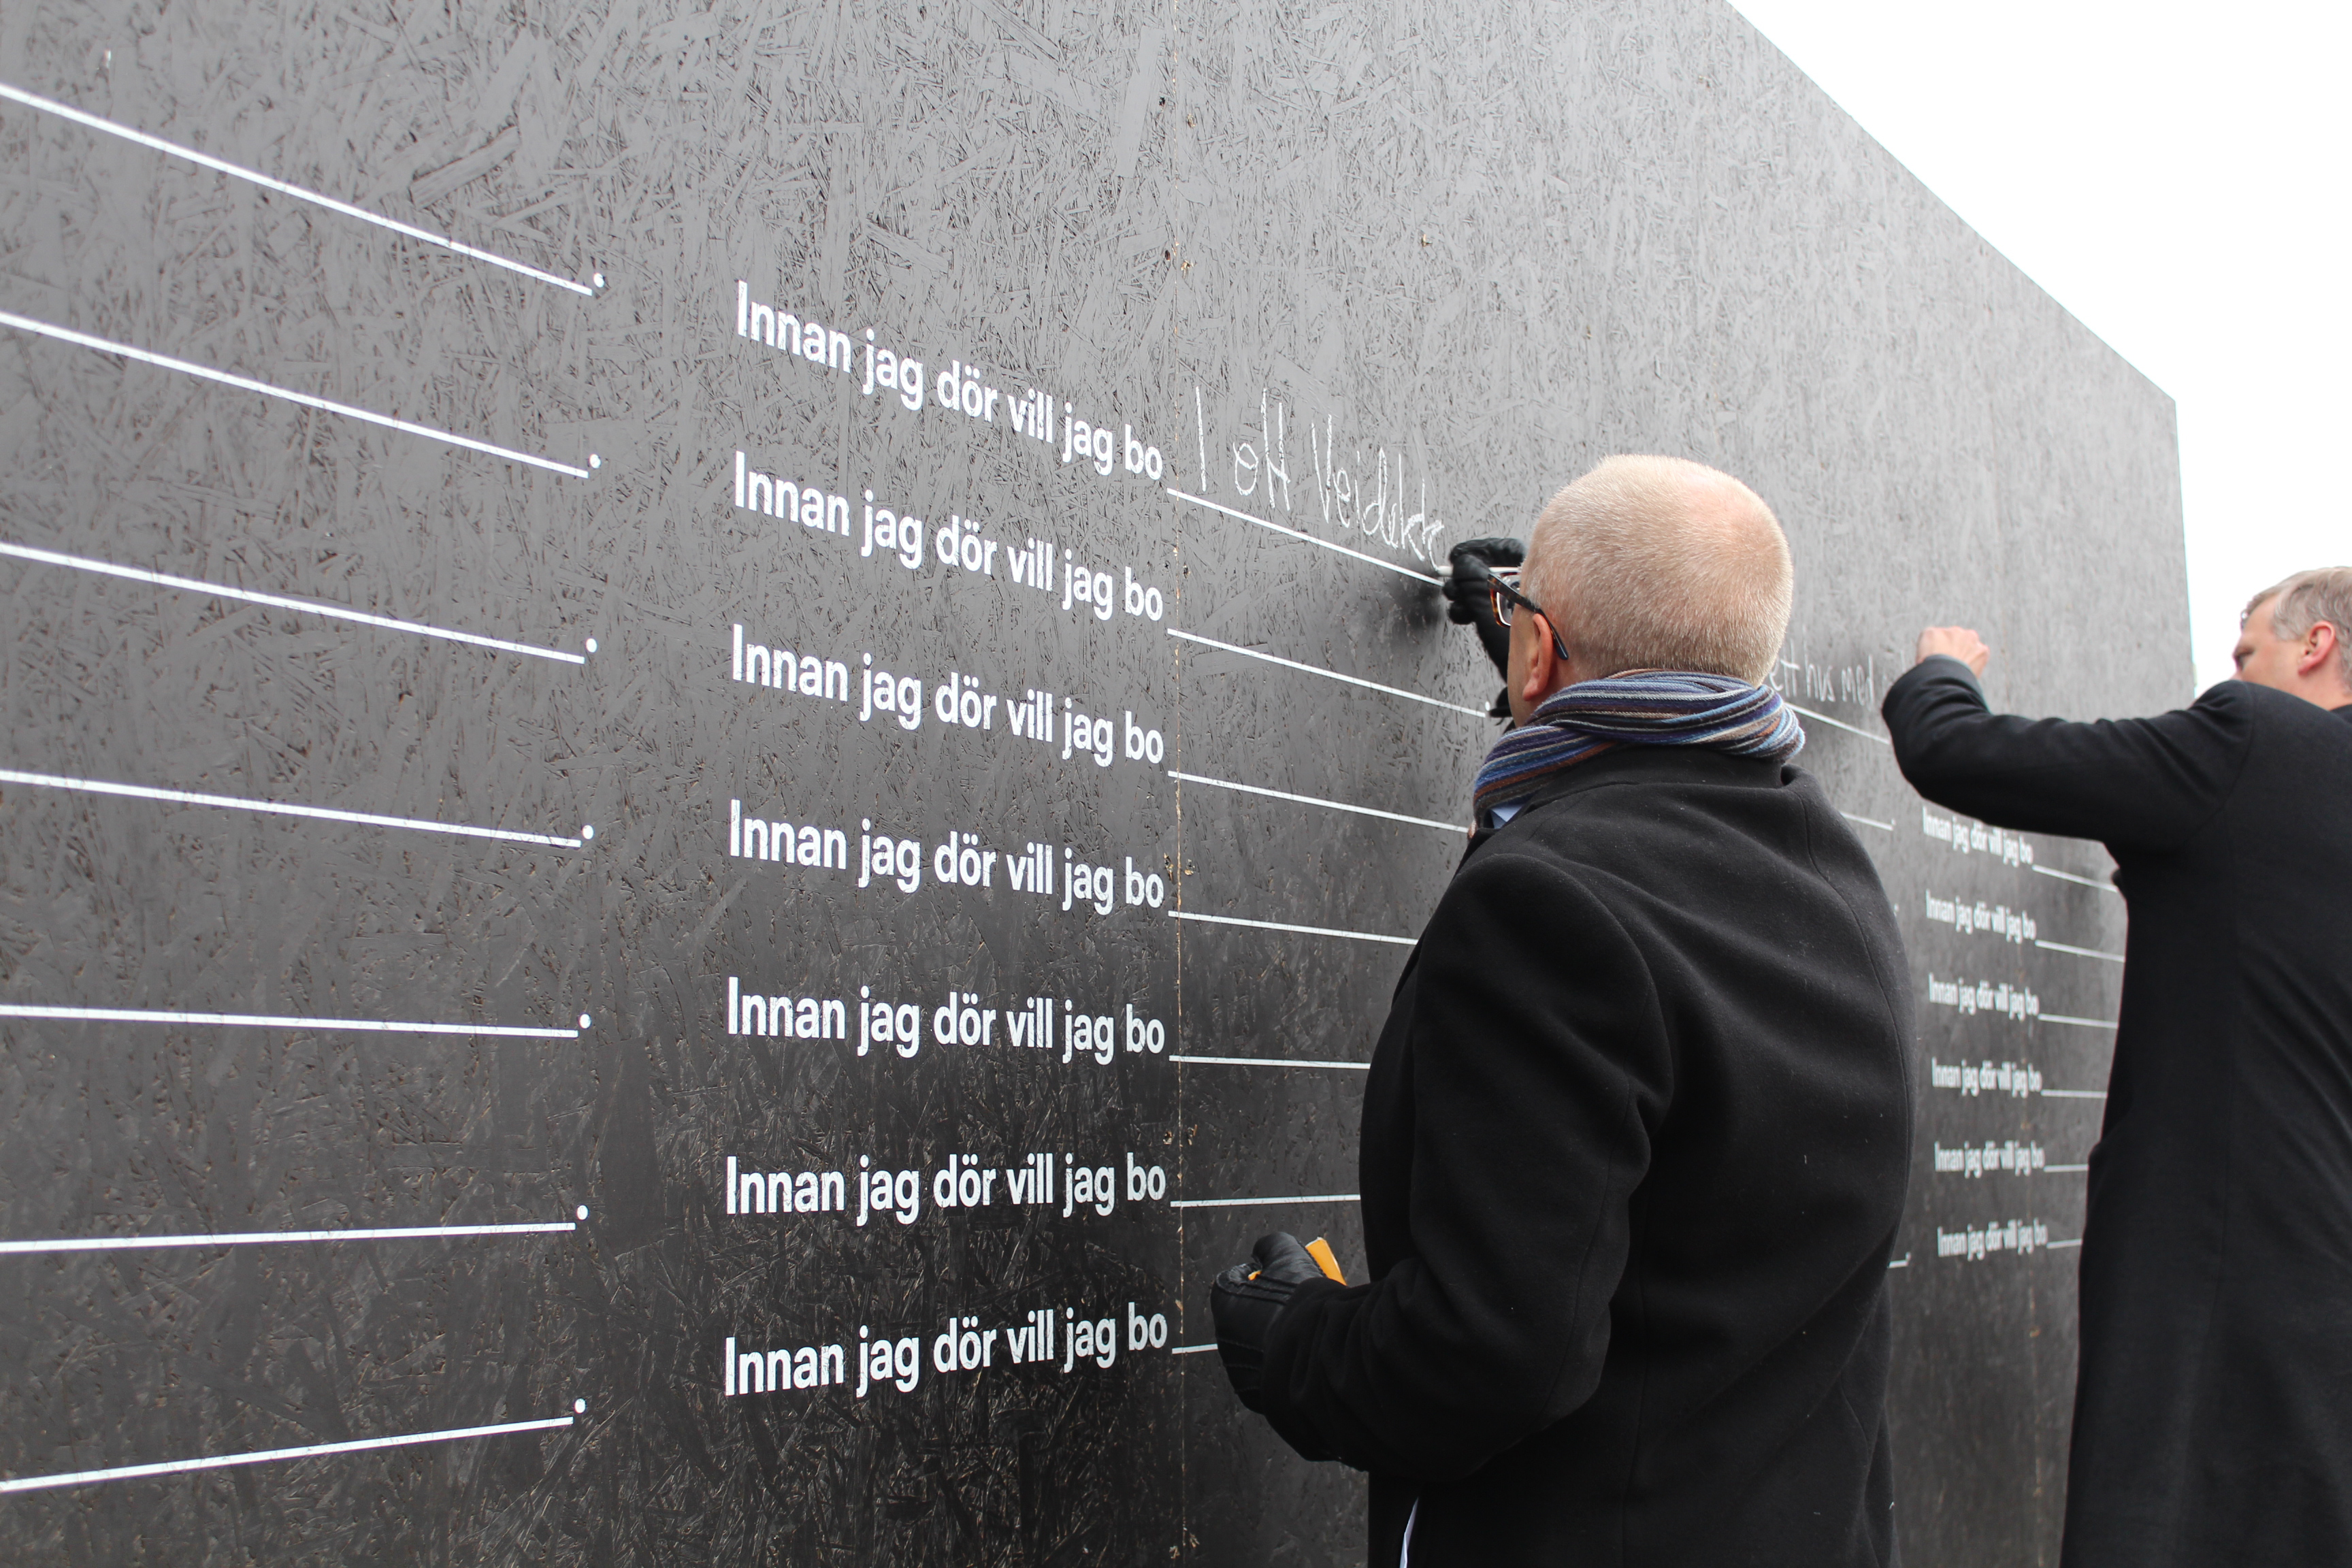 Innan jag dör vill jag bo I ett
Innan jag dör vill jag bo
Innan jag dör vill jag bo
Innan jag dör vill jag bo
Innan jag dör vill jag bo
Innan jag dör vill jag bo
Innan jag dör vill jag bo
hus med
Innan jag dör vill jag bo
Innan jag dör vill jag bo
Innan jag dör vill jag bo
Innan jag dör vill jag bo
Innan jag dör vill jag bo
Innan jag dör vill jag bo